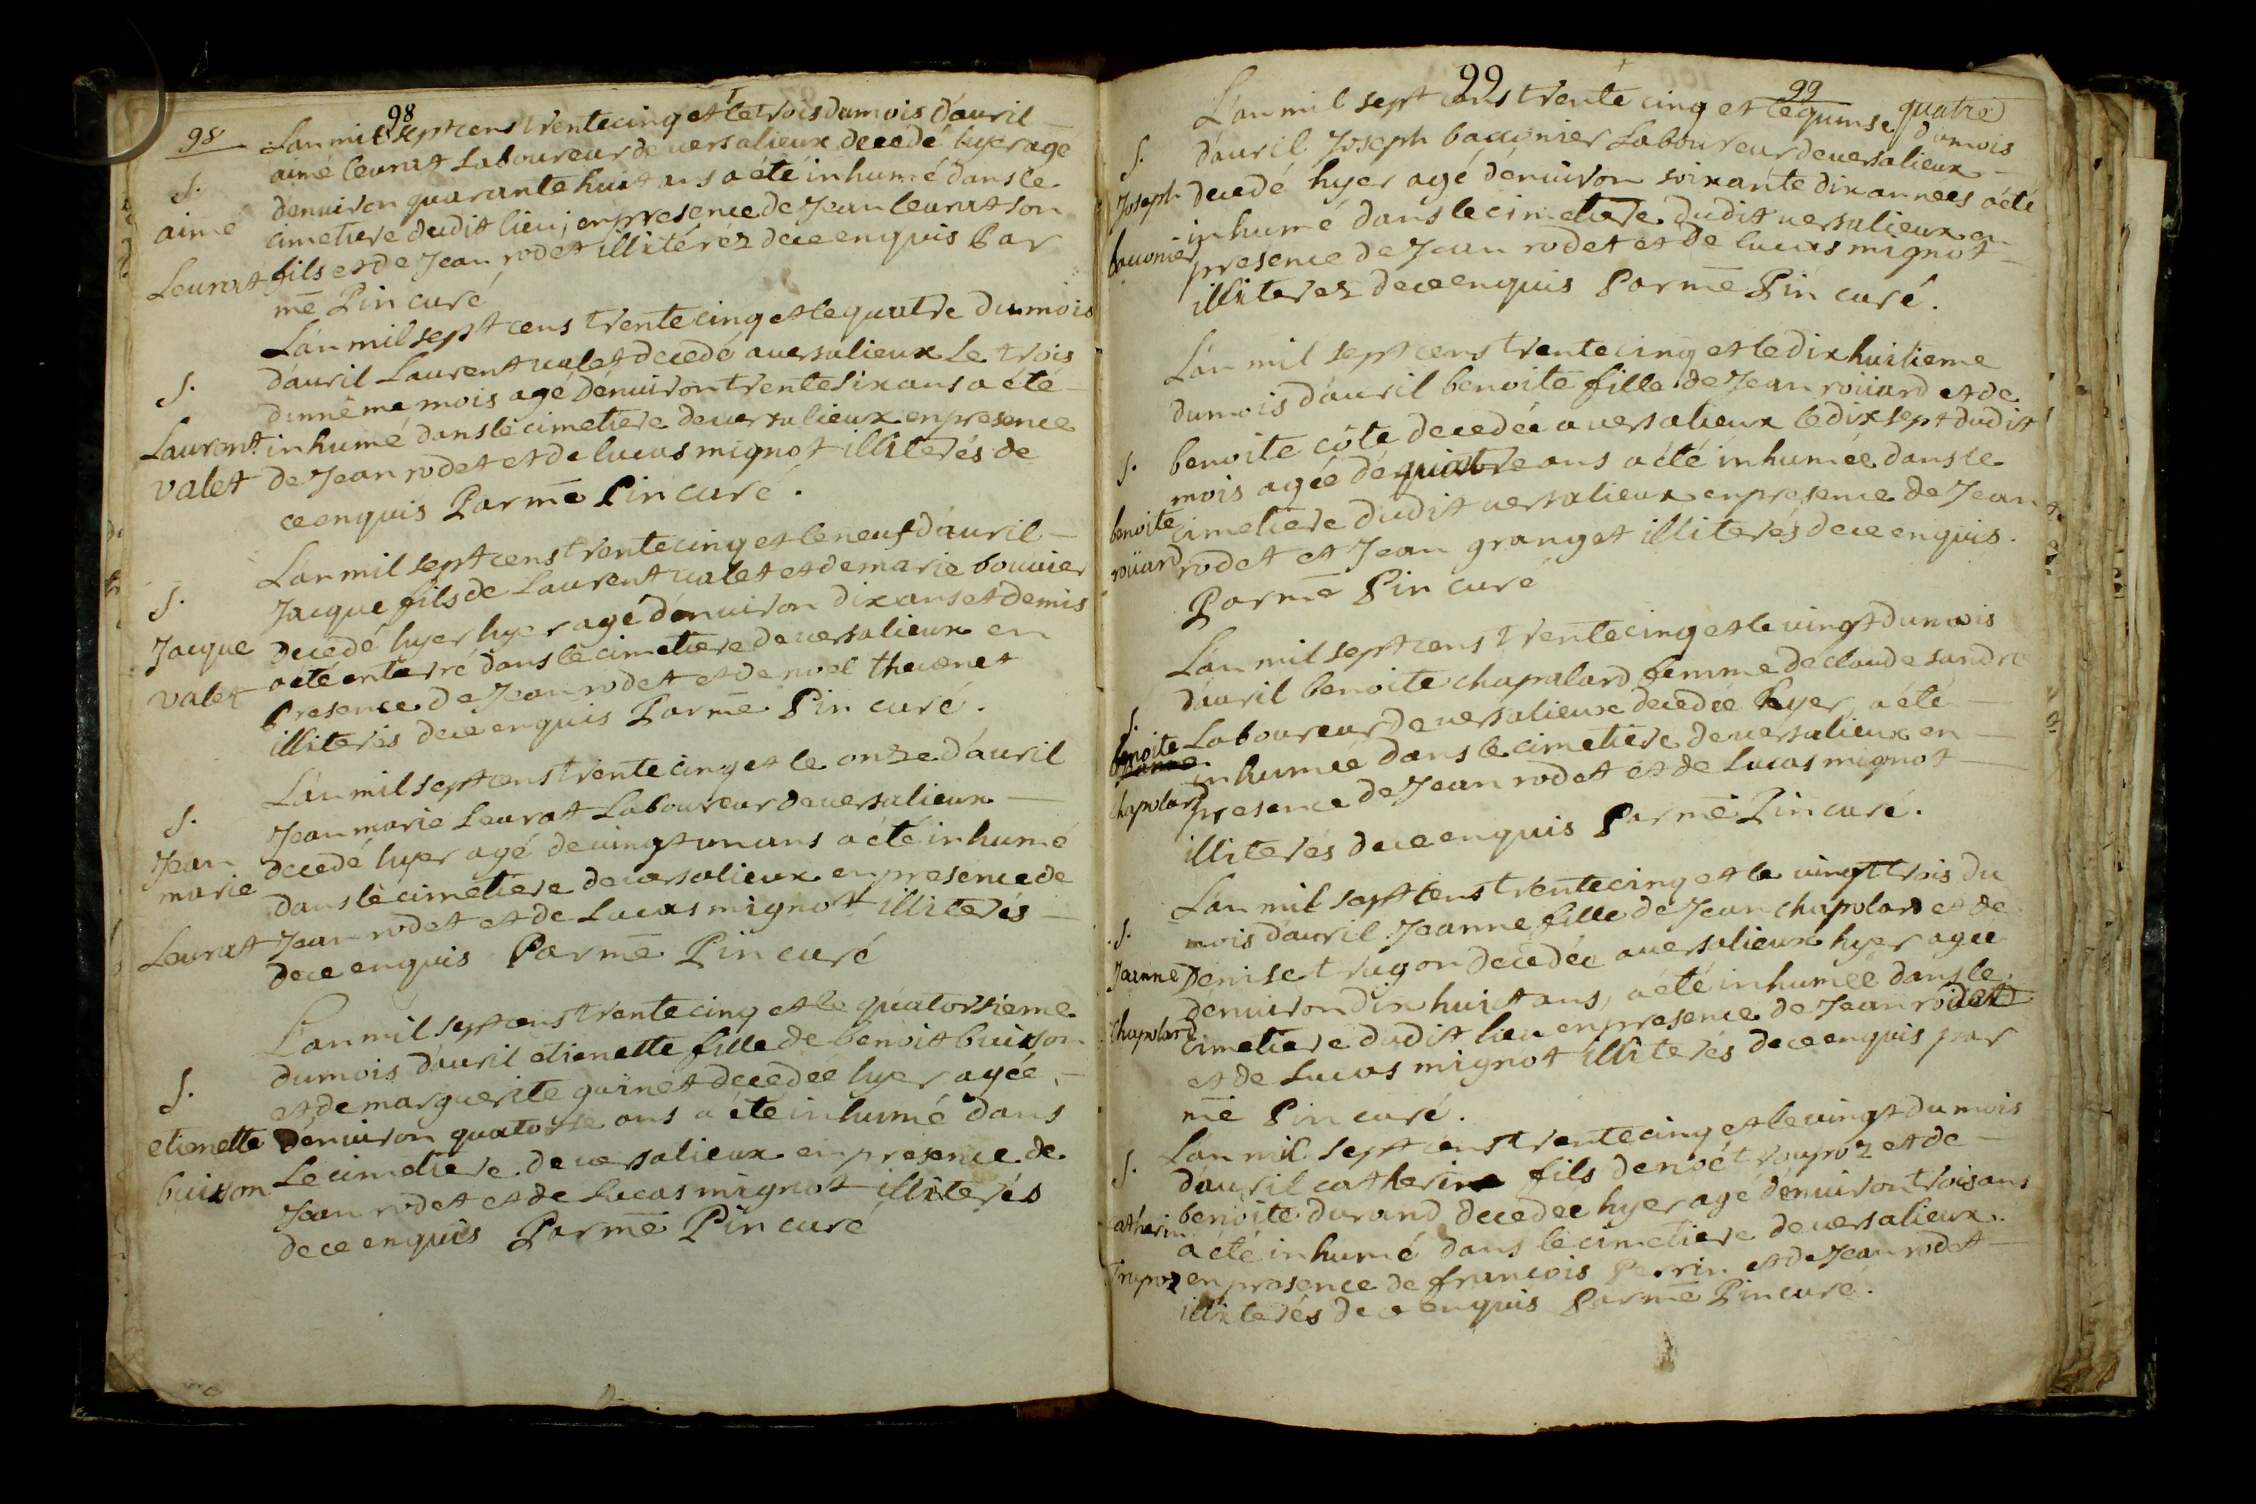 98
98
L'an mil sept cens trente cinq et le trois du mois d'auril
aimé leurat Laboureur de uersalieux decedé hyer agé
denuiron quarante huit ans a été inhumé dans le
cimetiere dudit lieu, en presence de Jean leurat son
fils et de Jean rodet illitéréz de ce enquis Par
mē Pin curé
S.
aimé
Leurat
L'an mil sept cens trente cinq et le quatre du mois
d'auril Laurent valet decedé a uersalieux Le trois
du même mois agé dénuiron trente six ans a été
inhumé dans le cimetiere de uersalieux en presence
de Jean rodet et de lucas mignot illiterés de
ce enquis Par mē Pin curé.
S.
Laurent
valet
L'an mil sept cens trente cinq et le neuf d'auril
Jacque fils de Laurent valet et de marie bouuier
Decedé hyer hyer agé dénuiron dix ans et demis
a été enterré dans le cimetiere de uersalieux en
Presence de Jean rodet et de noel theuenet
illiterés de ce enquis Par mē Pin curé.
S.
Jacque
valet
L'an mil sept cens trente cinq et le onze d'auril
Jean marie Leurat Laboureur de uersalieux
decedé hyer agé de uingt un ans a été inhumé
dans le cimetiere de uersalieux en presence de
Jean rodet et de Lucas mignot illiterés
de ce enquis Par mē Pin curé
S.
Jean
marie
Leurat
L'an mil sept cens trente cinq et le quatorsieme
du mois d'auril etienette fille de benoit buisson
et de marguerite guinet decedée hyer agée,
Dénuiron quatorse ans a été inhumé dans
Le cimetiere de uersalieux en presence de
Jean rodet et de Lucas mignot illiterés
de ce enquis Par mē Pin curé
S.
etienette
buisson
99
99
L'an mil sept cens trente cinq et le quinse quatre
du mois
d'auril Joseph bauonier Laboureur de uersalieux
decedé hyer agé dénuiron soixante dix annees a été
inhumé dans le cimetiere dudit uersalieux en
presence de Jean rodet et de lucas mignot
illiterez de ce enquis Par mē Pin curé.
S.
Joseph
bauonier
L'an mil sept cens trente cinq et le dix huitieme
du mois d'auril benoite fille de Jean roüard et de
benoite côte decedée a uersalieux le dix sept dudit
mois agée de quatre ans a été inhumée dans le
cimetiere dudit uersalieux en presence de Jean
rodet et Jean granget illiterés de ce enquis.
Par mē Pin curé
S.
benoite
roüard
L'an mil sept cens trente cinq et le uingt du mois
d'auril benoite chapolard femme de claude sandre
Laboureur de uersalieux decedée hyer, a été
inhumée dans le cimetiere de uersalieux en
presence de Jean rodet et de Lucas mignot
illiterés de ce enquis Par mē Pin curé.
S.
benoite
chapolard
L'an mil sept cens trente cinq et le uingt trois du
mois d'auril Jeanne fille de Jean chapolard et de
Denise trugon decedée a uersalieux hyer agée
dénuiron dix huict ans, a été inhumée dans le
cimetiere dudit lieu en presence de Jean rodet
et de Lucas mignot illiterés de ce enquis par
mē Pin curé.
S.
Jeanne
chapolard
L'an mil sept cens trente cinq et le uingt du mois
d'auril catherin fils de noé troupoz et de
benoite durand decedée hyer agé dénuiron trois ans
a été inhumé dans le cimetiere de uersalieux.
en presence de françois Perrin et de Jean rodet
illiterés de ce enquis Par mē Pin curé.
S.
catherin